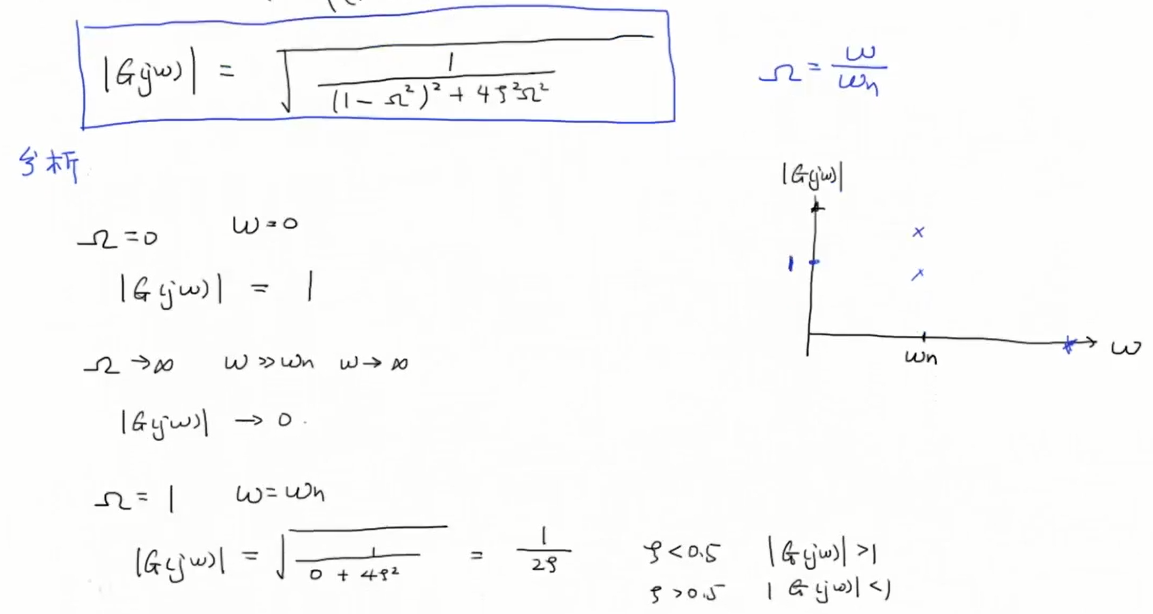 |G(jω)| = √(1/((1-Ω²)²+4ζ²Ω²))
Ω = ω/ωn
分析
Ω=0 ω=0
|G(jω)| = 1
Ω→∞ ω≫ωn ω→∞
|G(jω)| → 0.
Ω=1 ω=ωn
|G(jω)| = √(1/(0+4ζ²)) = 1/2ζ
ζ<0.5 |G(jω)|>1
ζ>0.5 |G(jω)|<1
|G(jω)|
1
ωn
ω